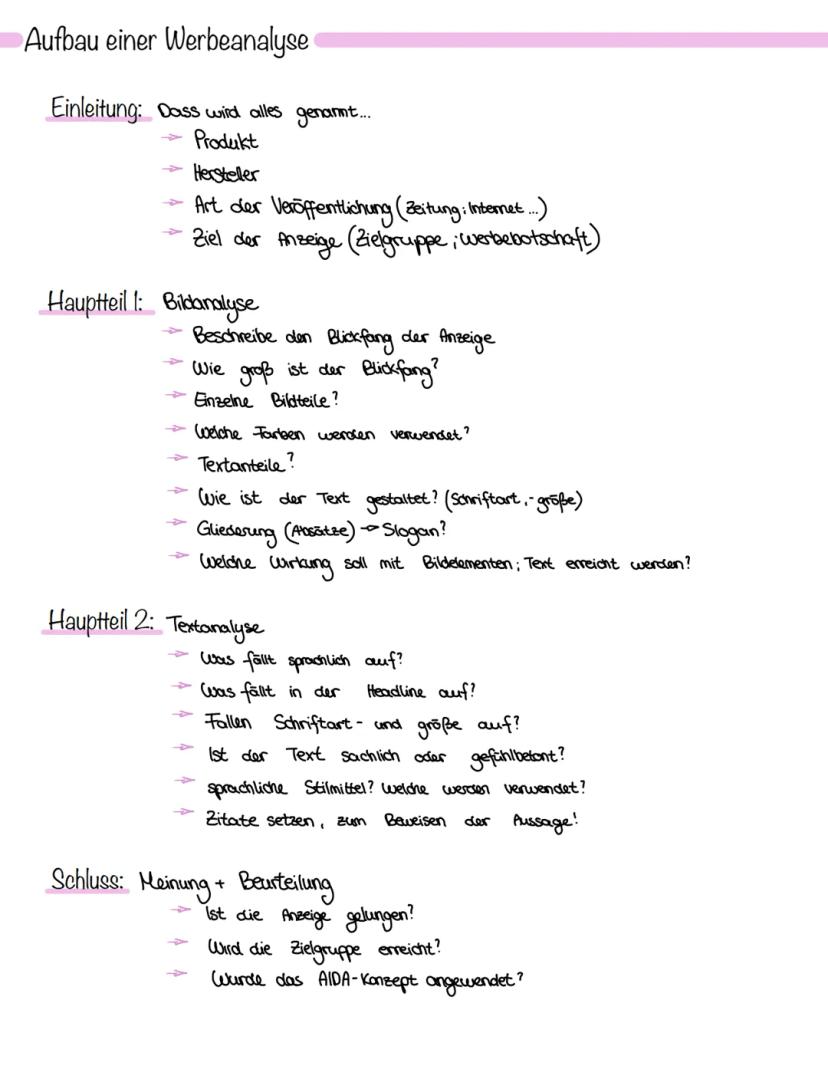 Aufbau einer Werbeanalyse
Einleitung: Dass wird alles genannt...
Produkt
Hersteller
Art der Veröffentlichung (Zeitung; Internet ...)
Ziel der Anzeige (Zielgruppe ; Werbebotschaft)
Hauptteil 1: Bildanalyse
Beschreibe den Blickfang der Anzeige
Wie groß ist der Blickfang?
Einzelne Bildteile?
Welche Farben werden verwendet?
Textanteile?
Wie ist der Text gestaltet? (Schriftart, -größe)
Gliederung (Absätze) → Slogan?
Welche Wirkung soll mit Bildelementen; Text erreicht werden?
Hauptteil 2: Textanalyse
Was fällt sprachlich auf?
Was fällt in der Headline auf?
Fallen Schriftart- und größe auf?
Ist der Text sachlich oder gefühlbetont?
sprachliche Stilmittel? Welche werden verwendet?
Zitate setzen, zum Beweisen der Aussage!
Schluss: Meinung + Beurteilung
Ist die Anzeige gelungen?
Wird die Zielgruppe erreicht?
Wurde das AIDA-Konzept angewendet?